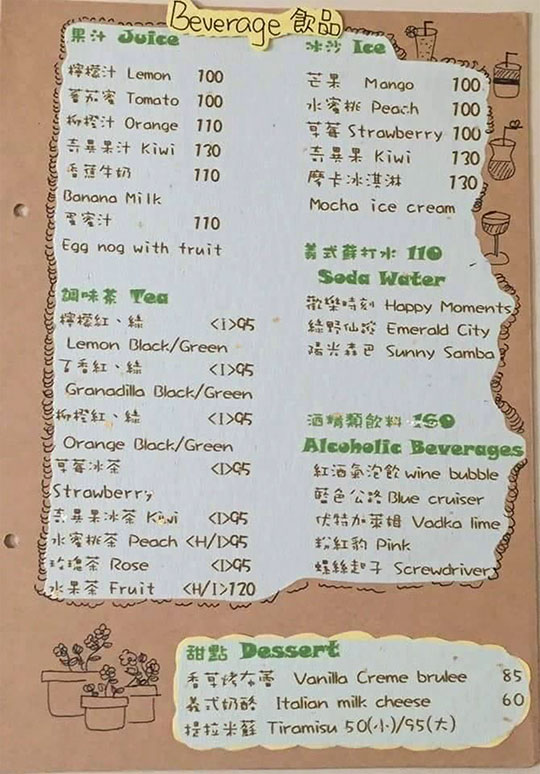 Beverage 飲品
果汁 Juice
檸檬汁 Lemon 100
蕃茄蜜 Tomato 100
柳橙汁 Orange 110
奇異果汁 Kiwi 130
香蕉牛奶 110
Banana Milk
蛋蜜汁 110
Egg nog with fruit
調味茶 Tea
檸檬紅、綠 <I>95
Lemon Black/Green
百香紅、綠 <I>95
Granadilla Black/Green
柳橙紅、綠 <I>95
Orange Black/Green
草莓冰茶 <I>95
Strawberry
奇異果冰茶 Kiwi <I>95
水蜜桃茶 Peach <H/I>95
玫瑰茶 Rose <I>95
水果茶 Fruit <H/I>120
冰沙 Ice
芒果 Mango 100
水蜜桃 Peach 100
草莓 Strawberry 100
奇異果 Kiwi 130
摩卡冰淇淋 130
Mocha ice cream
義式蘇打水 110
Soda Water
歡樂時刻 Happy Moments
綠野仙蹤 Emerald City
陽光森巴 Sunny Samba
酒精類飲料 160
Alcoholic Beverages
紅酒氣泡飲 wine bubble
藍色公路 Blue cruiser
伏特加萊姆 Vodka lime
粉紅豹 Pink
螺絲起子 Screwdriver
甜點 Dessert
香草烤布蕾 Vanilla Creme brulee 85
義式奶酪 Italian milk cheese 60
提拉米蘇 Tiramisu 50(小)/95(大)